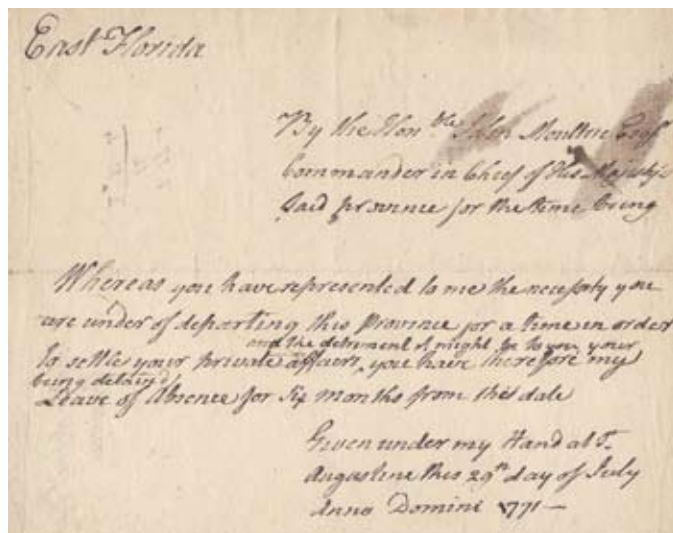 East Florida
By the Hon.ble John Moultrie Esqr
Commander in Chief of His Majesty's
Said province for the time being
Whereas you have represented to me the necessity you
are under of departing this Province for a time in order
and the detriment it might be to you, your
to settle your private affairs, you have therefore my
being delay'd
Leave of Absence for Six months from this date
Given under my Hand at St.
Augustine this 29th day of July
Anno Domini 1771 —